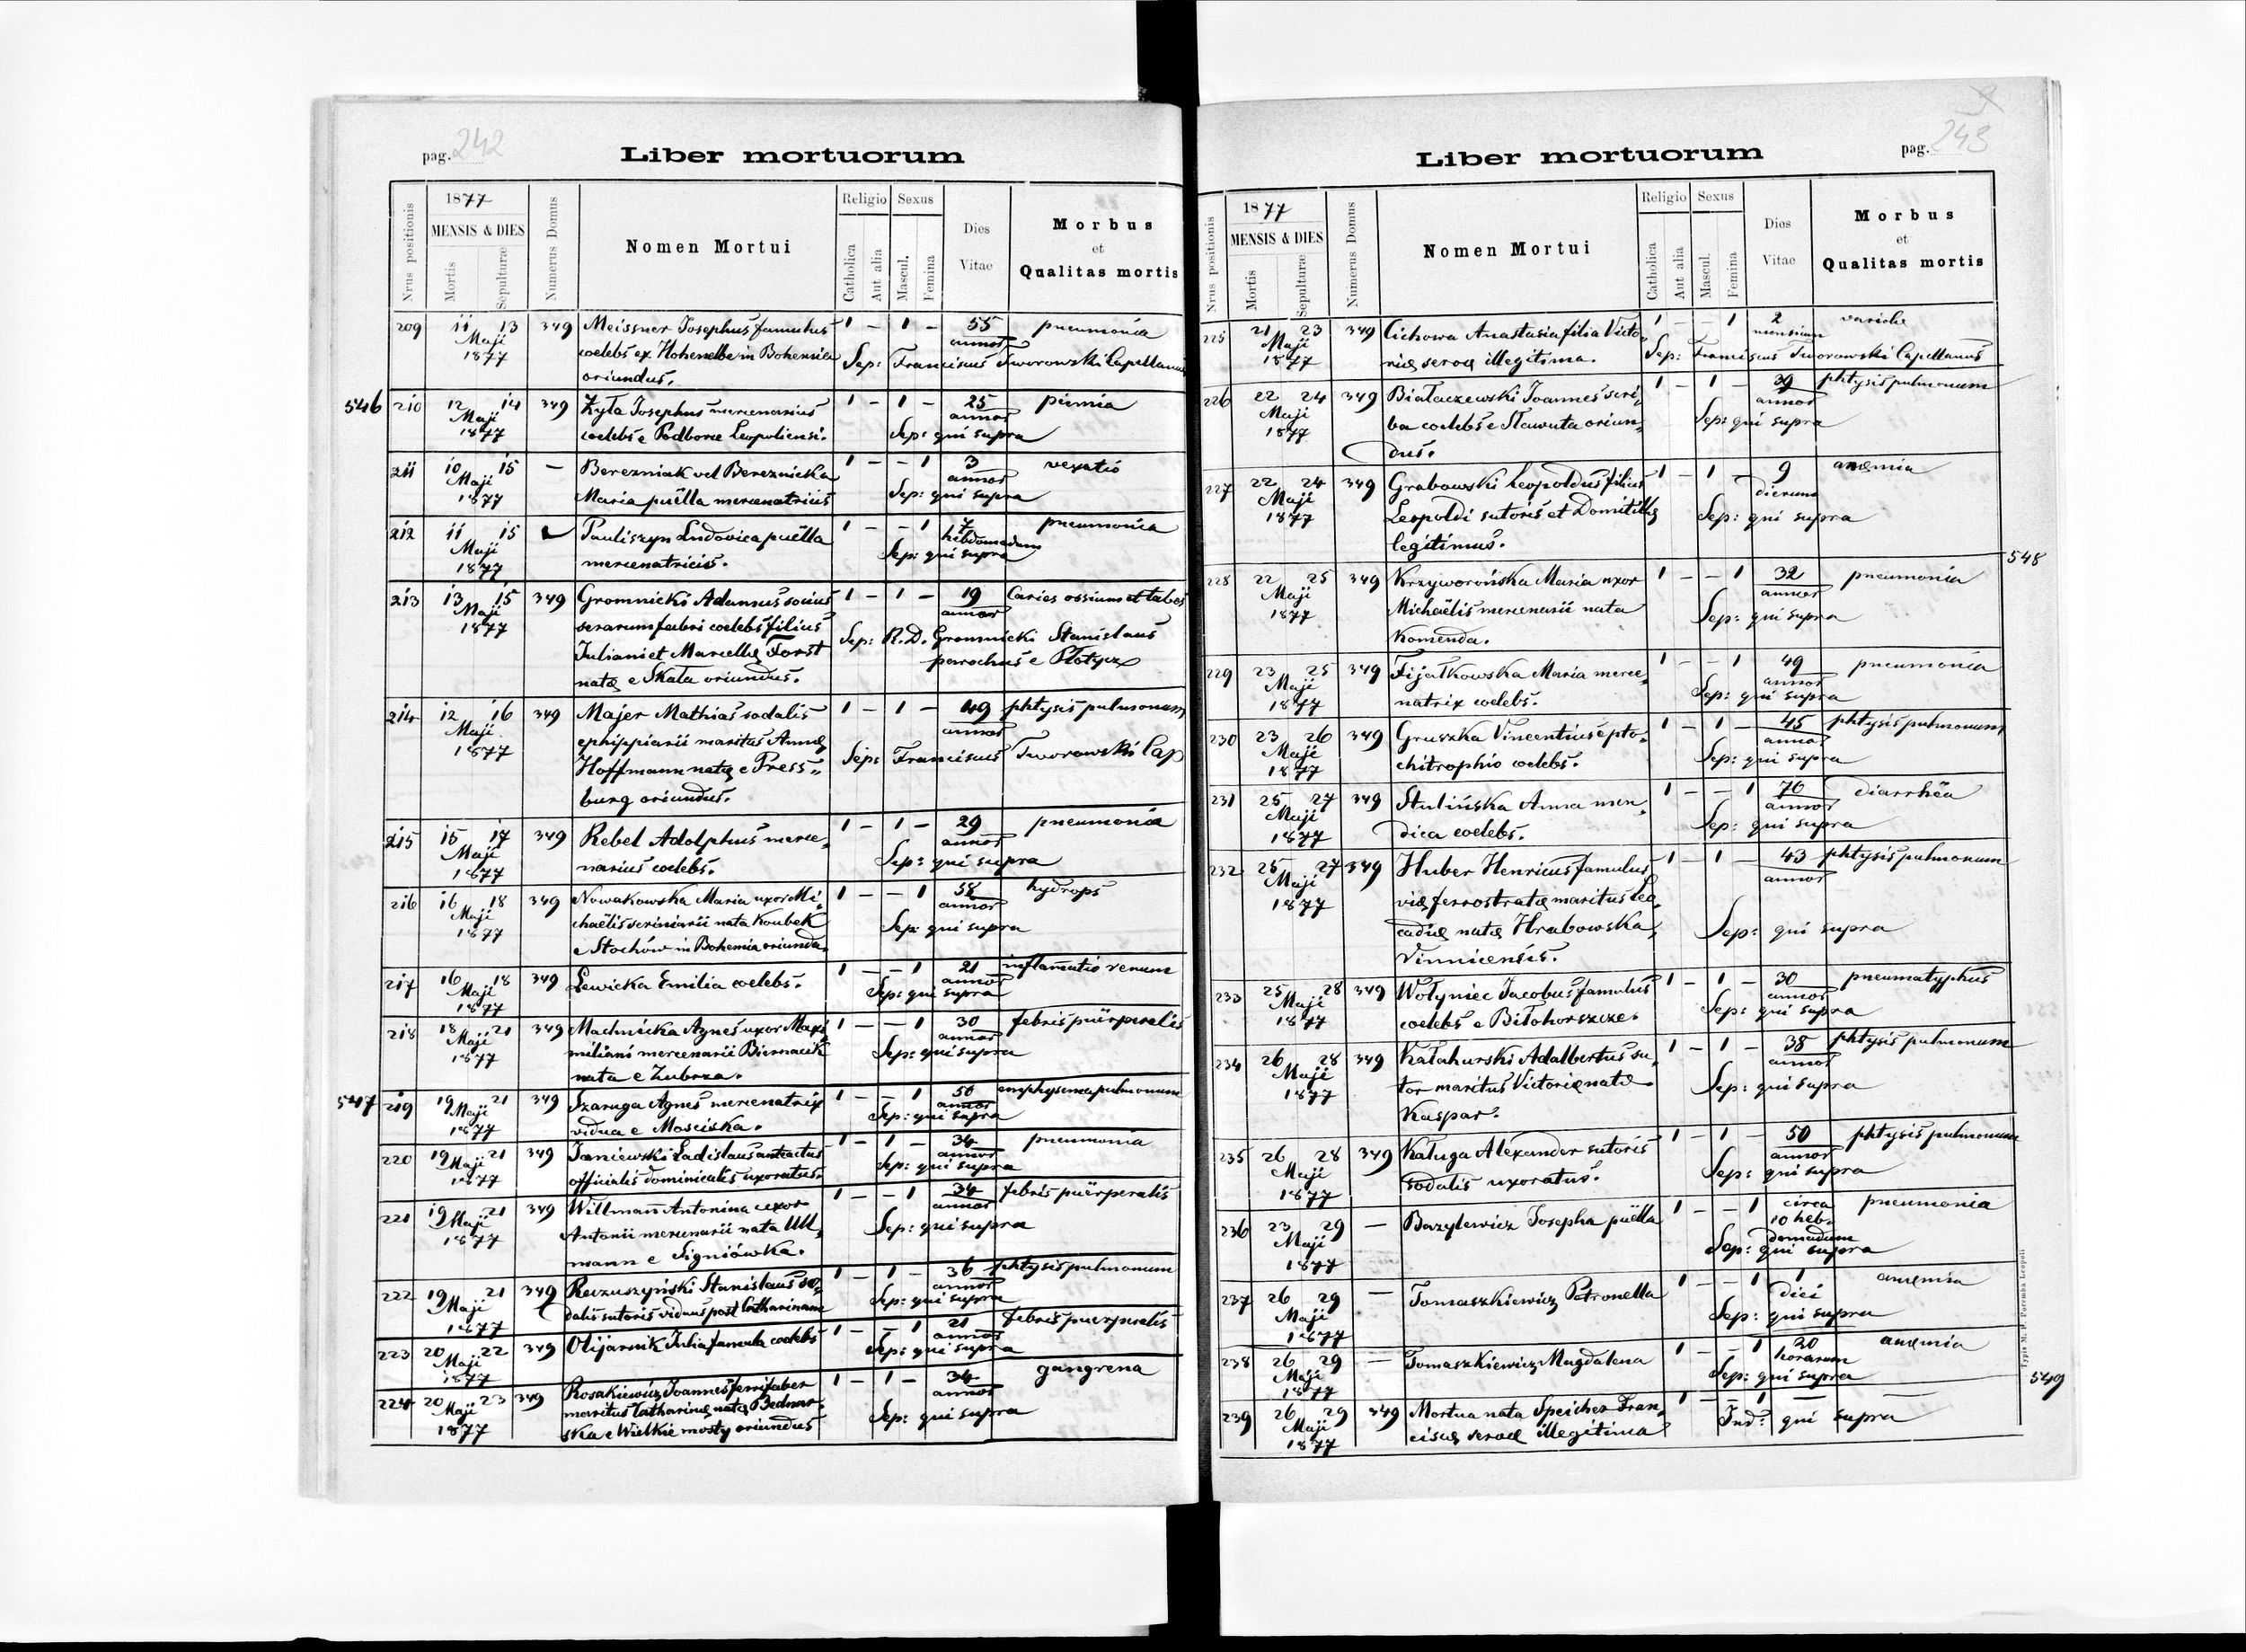 pag. 242
Liber mortuorum
Nrus positionis
1877
MENSIS & DIES
Mortis
Sepulturæ
Numerus Domus
Nomen Mortui
Religio
Catholica
Aut alia
Sexus
Mascul.
Femina
Dies
Vitae
Morbus
et
Qualitas mortis
209 11 13 349 Meissner Josephus famulus 1 – 1 – 55 pneumonia
Maji coelebs ex Hohenelbe in Bohemia annor
1877 oriundus. Sep: Franciscus Tworowski Capellanus
546 210 12 14 349 Zyła Josephus mercenarius 1 – 1 – 25 piemia
Maji annor
1877 coelebs e Podborce Leopoliensi. Sep: qui supra
211 10 15 – Berezniak vel Bereznicka 1 – – 1 3 vexatio
Maji annor
1877 Maria puëlla mercenatricis Sep: qui supra
212 11 15 Pauliszyn Ludovica puëlla 1 – – 1 7 pneumonia
Maji hebdomadum
1877 mercenatricis. Sep: qui supra
213 13 15 349 Gromnicki Adamus socius 1 – 1 – 19 Caries ossium et tabes
Maji serarum fabri coelebs filius annor
1877 Juliani et Marcellę Forst Sep: R.D. Gromnicki Stanislaus
natę e Skała oriundus. parochus e Płotycz
214 12 16 349 Majer Mathias sodalis 1 – 1 – 49 phtysis pulmonum
Maji ephippiarii maritus Annę annor
1877 Hoffmann natę e Press„ Sep: Franciscus Tworowski Cap
burg oriundus.
215 15 17 349 Rebel Adolphus merce„ 1 – 1 – 29 pneumonia
Maji annor
1877 narius coelebs. Sep: qui supra
216 16 18 349 Nowakowska Maria uxor Mi„ 1 – – 1 58 hydrops
Maji chaëlis scriniarii nata Koubek annor
1877 e Stochów in Bohemia oriunda. Sep: qui supra
217 16 18 349 Lewicka Emilia coelebs. 1 – – 1 21 inflamatio renum
Maji annor
1877 Sep: qui supra
218 18 21 349 Machnicka Agnes uxor Maxi„ 1 – – 1 30 febris püerperalis
Maji miliani mercenarii Biernacik annor
1877 nata e Zubrza. Sep: qui supra
547 219 19 21 349 Szaruga Agnes mercenatrix 1 – – 1 50 emphysema pulmonum
Maji annor
1877 vidua e Mosciska. Sep: qui supra
220 19 21 349 Janiewski Ladislaus anteactus 1 – 1 – 34 pneumonia
Maji annor
1877 officialis dominicalis uxoratus. Sep: qui supra
221 19 21 349 Willmann Antonina uxor 1 – – 1 34 febris püerperalis
Maji Antonii mercenarii nata Ull„ annor
1877 mann e Signiówka. Sep: qui supra
222 19 21 349 Reczuszyński Stanislaus so„ 1 – 1 – 36 phtysis pulmonum
Maji annor
1877 dalis sutoris viduus post Catharinam Sep: qui supra
223 20 22 349 Olijarnik Julia famula coelebs 1 – – 1 21 febris puerperalis
Maji annor
1877 Sep: qui supra
224 20 23 349 Rosakiewicz Joannes ferrifaber 1 – 1 – 34 gangrena
Maji maritus Catharinę natę Bednar„ annor
1877 ska e Wielkie mosty oriundus Sep: qui supra
pag. 243
Liber mortuorum
Nrus positionis
1877
MENSIS & DIES
Mortis
Sepulturæ
Numerus Domus
Nomen Mortui
Religio
Catholica
Aut alia
Sexus
Mascul.
Femina
Dies
Vitae
Morbus
et
Qualitas mortis
225 21 23 349 Cichowa Anastasia filia Victo„ 1 – – 1 2 variole
Maji mensium
1877 rię servę illegitima. Sep: Franciscus Tworowski Capellanus
226 22 24 349 Białaczewski Joannes scri„ 1 – 1 – 39 phtysis pulmonum
Maji ba coelebs e Sławuta oriun„ annor
1877 dus. Sep: qui supra
227 22 24 349 Grabowski Leopoldus filius 1 – 1 – 9 anæmia
Maji Leopoldi sutoris et Domitillę dierum
1877 legitimus. Sep: qui supra
548
228 22 25 349 Krzyworońska Maria uxor 1 – – 1 32 pneumonia
Maji Michaëlis mercenarii nata annor
1877 Komenda. Sep: qui supra
229 23 25 349 Fijałkowska Maria merce„ 1 – – 1 49 pneumonia
Maji annor
1877 natrix coelebs. Sep: qui supra
230 23 26 349 Gruszka Vincentius e pto„ 1 – 1 – 45 phtysis pulmonum
Maji annor
1877 chitrophio coelebs. Sep: qui supra
231 25 27 349 Stulińska Anna men„ 1 – – 1 70 diarrhëa
Maji annor
1877 dica coelebs. Sep: qui supra
232 25 27 349 Huber Henricus famulus 1 – 1 – 43 phtysis pulmonum
Maji vię ferrostratę maritus Leo„ annor
1877 cadię natę Hrabowska, Sep: qui supra
Vinnicensis.
233 25 28 349 Wołyniec Jacobus famulus 1 – 1 – 30 pneumatyphus
Maji annor
1877 coelebs e Biłohorszcze. Sep: qui supra
234 26 28 349 Kałahurski Adalbertus su„ 1 – 1 – 38 phtysis pulmonum
Maji tor maritus Victorię natę annor
1877 Kaspar. Sep: qui supra
235 26 28 349 Kaługa Alexander sutoris 1 – 1 – 50 phtysis pulmonum
Maji annor
1877 sodalis uxoratus. Sep: qui supra
236 23 29 – Bazylewicz Josepha puëlla 1 – – 1 circa pneumonia
Maji 10 heb„
1877 domadum
Sep: qui supra
237 26 29 – Tomaszkiewicz Petronella 1 – – 1 1 anæmia
Maji diei
1877 Sep: qui supra
238 26 29 – Tomaszkiewicz Magdalena 1 – – 1 20 anæmia
Maji horarum
1877 Sep: qui supra
549
239 26 29 349 Mortua nata Speicher Fran„ 1 – – 1 – –
Maji
1877 ciscę servæ illegitima Ind: qui supra
Typis M. F. Poremba Leopoli